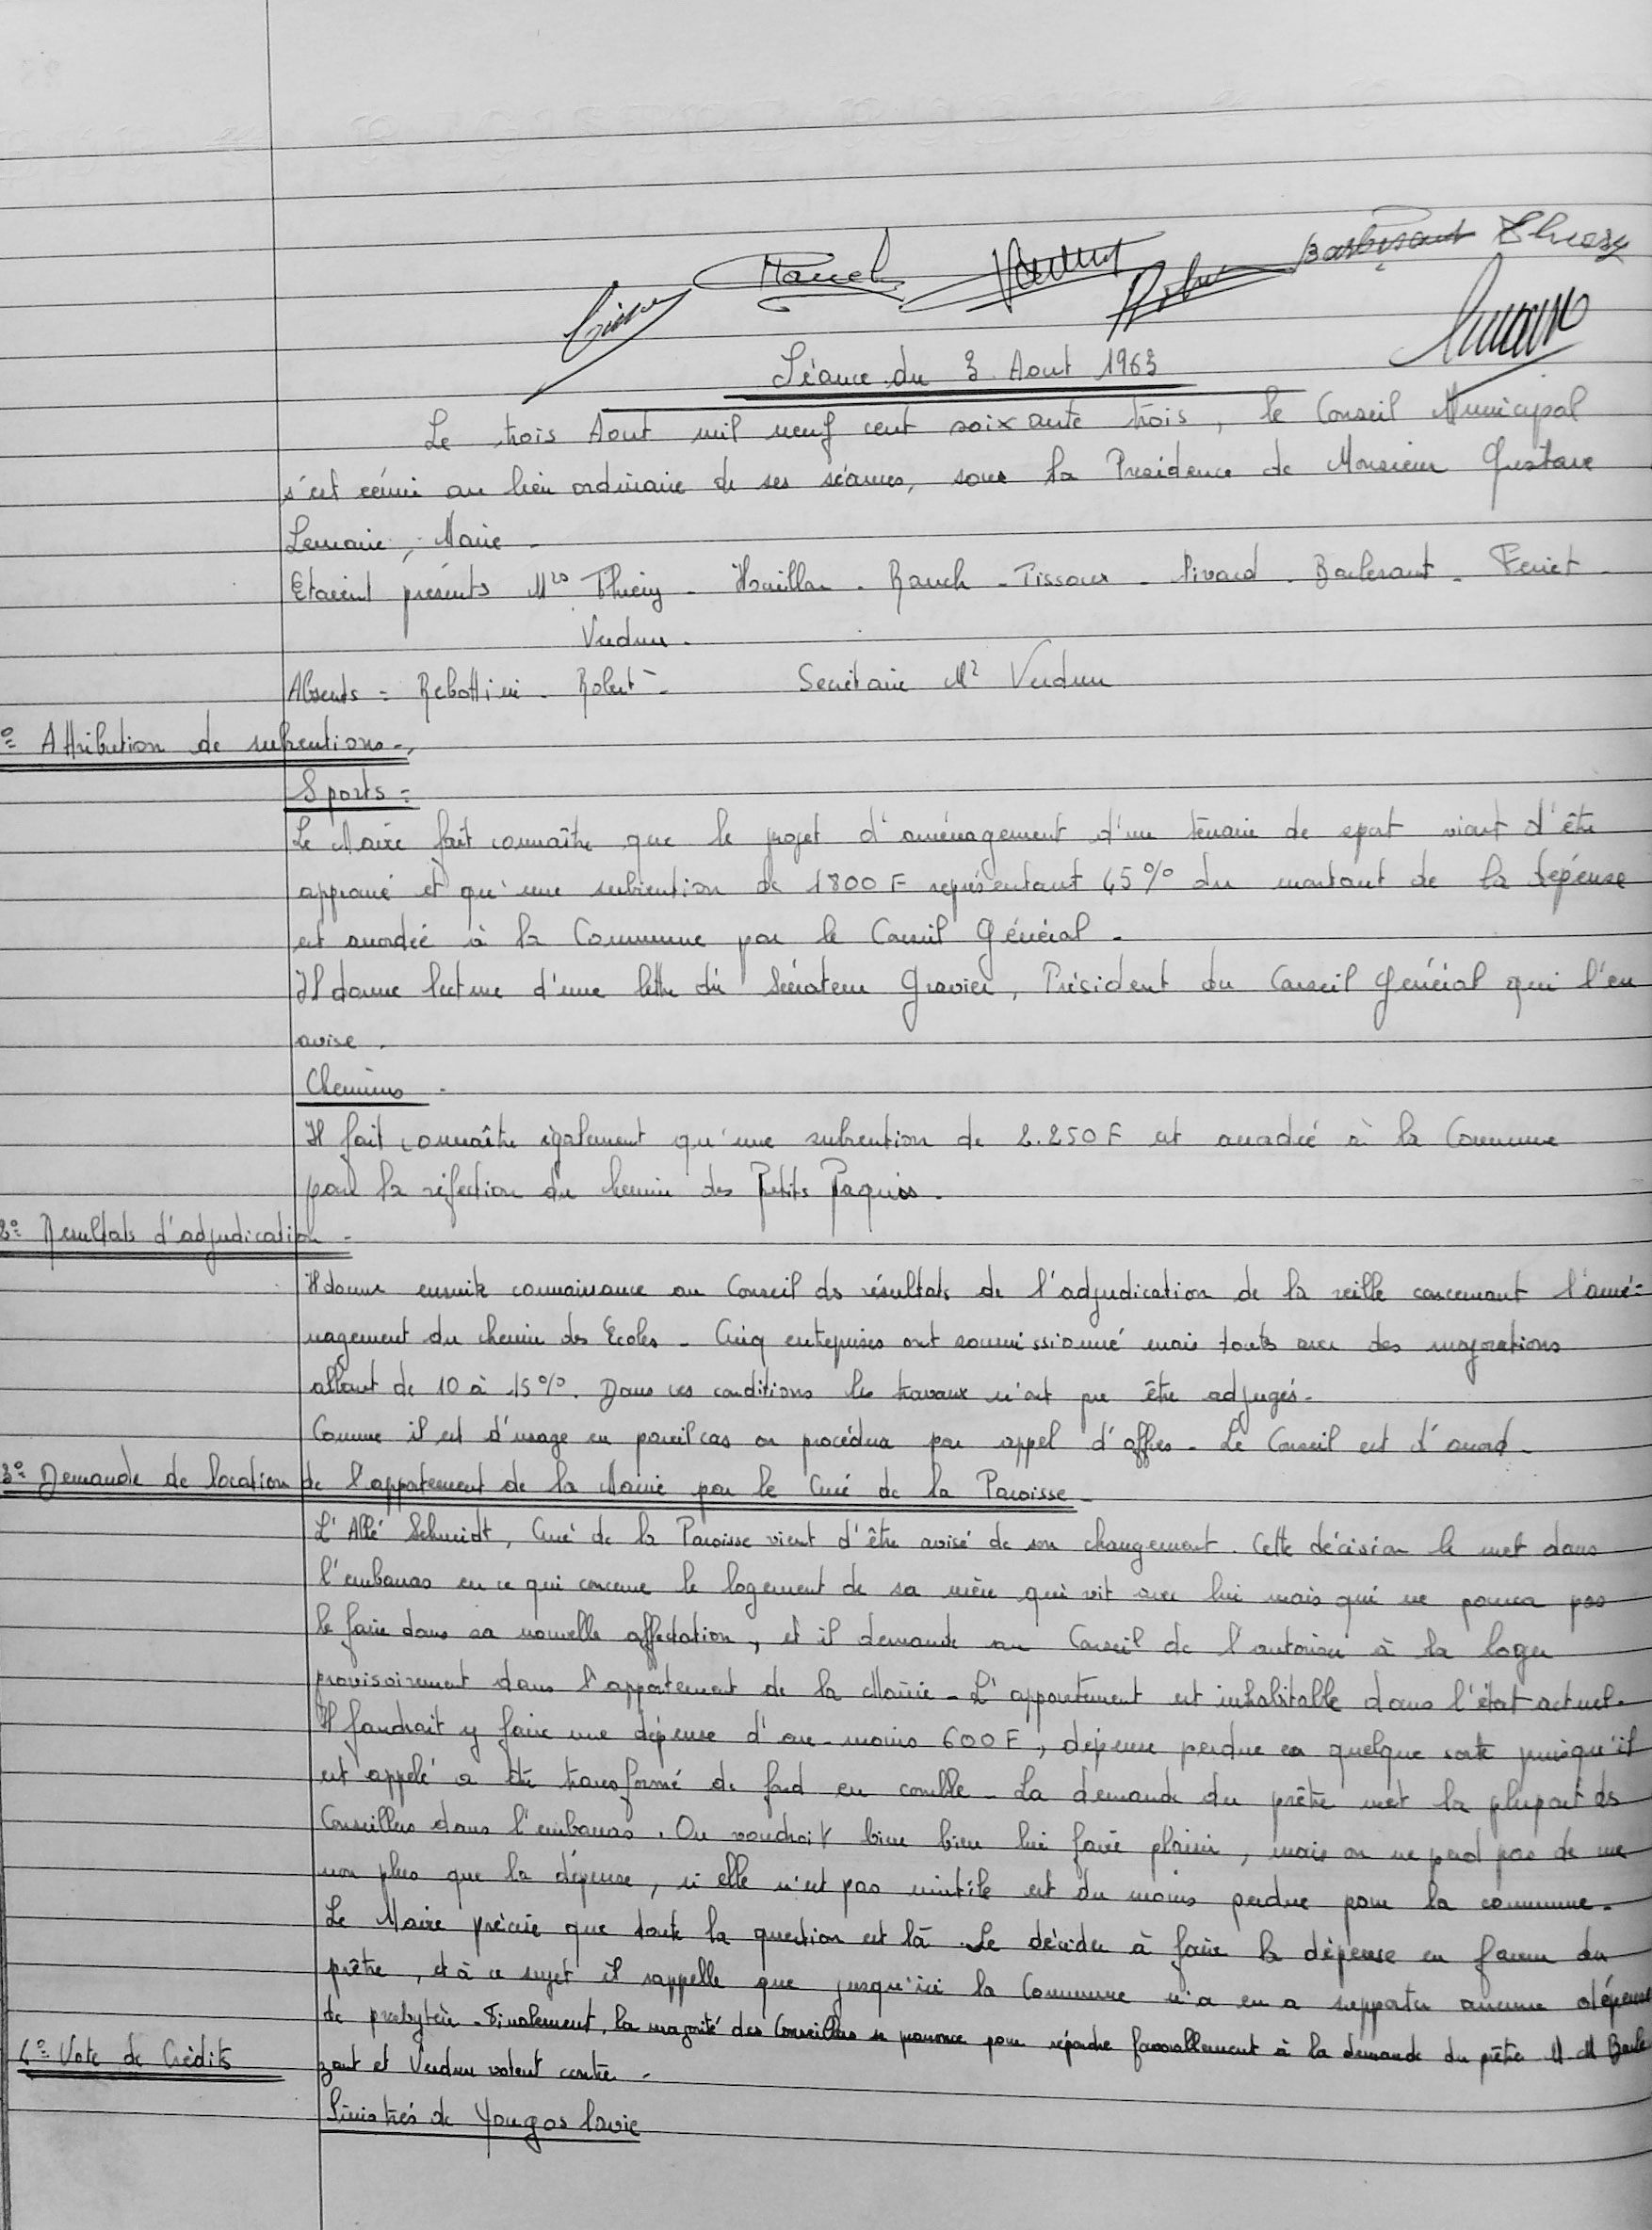 Barbezant Thiery
Séance du 3 Aout 1963
Le trois Aout mil neuf cent soixante trois, le Conseil Municipal
s'est réuni au lieu ordinaire de ses séances, sous la Présidence de Monsieur Gustave
Lemaire, Maire -
Etaient présents Mrs Thiery - Houillon - Rauch - Tissoux - Pivard - Barbesant - Feriet -
Verdun -
Absents = Rebottini - Robert - Secrétaire Mr Verdun
1° = Attribution de subventions -
Sports =
Le Maire fait connaître que le projet d'aménagement d'un terrain de sport vient d'être
approuvé et qu'une subvention de 1800 F représentant 45 % du montant de la dépense
est accordée à la Commune par le Conseil Général -
Il donne lecture d'une lettre du Sénateur Gravier, Président du Conseil Général qui l'en
avise .
Chemins -
Il fait connaître également qu'une subvention de 2.250 F est accordée à la Commune
pour la réfection du chemin des Petits Paquis -
2° = Résultats d'adjudication -
Il donne ensuite connaissance au Conseil des résultats de l'adjudication de la veille concernant l'amé=
nagement du chemin des Ecoles - Cinq entreprises ont soumissionné mais toutes avec des majorations
allant de 10 à 15 %. Dans ces conditions les travaux n'ont pu être adjugés -
Comme il est d'usage en pareil cas on procédera par appel d'offres - Le Conseil est d'accord -
3° = Demande de location de l'appartement de la Mairie par le Curé de la Paroisse -
L'Abbé Schmidt, Curé de la Paroisse vient d'être avisé de son changement. Cette décision le met dans
l'embarras en ce qui concerne le logement de sa mère qui vit avec lui mais qui ne pourra pas
le faire dans sa nouvelle affectation, et il demande au Conseil de l'autoriser à la loger
provisoirement dans l'appartement de la Mairie - L'appartement est inhabitable dans l'état actuel -
Il faudrait y faire une dépense d'au-moins 600 F, dépense perdue en quelque sorte puisqu'il
est appelé a être transformé de fond en comble - La demande du prêtre met la plupart des
Conseillers dans l'embarras. On voudrait bien bien lui faire plaisir, mais on ne perd pas de vue
non plus que la dépense, si elle n'est pas inutile est du moins perdue pour la commune -
Le Maire précise que toute la question est là. Se décider à faire la dépense en faveur du
prêtre, et à ce sujet il rappelle que jusqu'ici la Commune n'a eu a supporter aucune dépense
de presbytère - Finalement, la majorité des Conseillers se prononce pour répondre favorablement à la demande du prêtre M. M Barbe
zant et Verdun votent contre -
4° = Vote de Crédits
Sinistrés de Yougoslavie